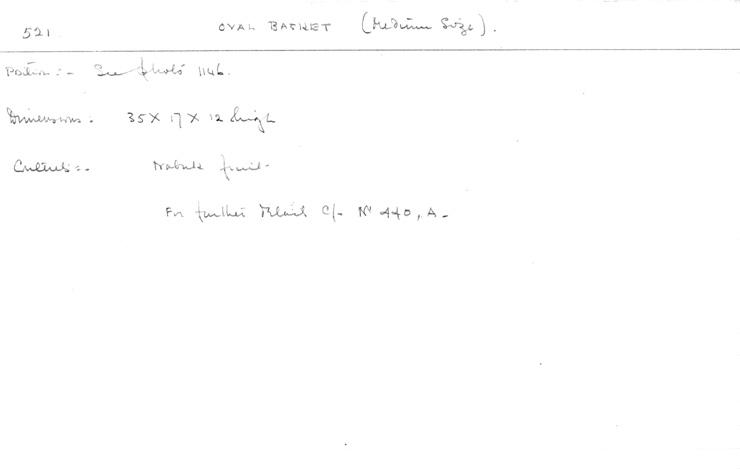 521. OVAL BASKET (Medium Size).
Position:- See photo 1146.
Dimensions. 35 X 17 X 12 high
Contents:- Nabuk fruit.
For further details c/- No 440, A-